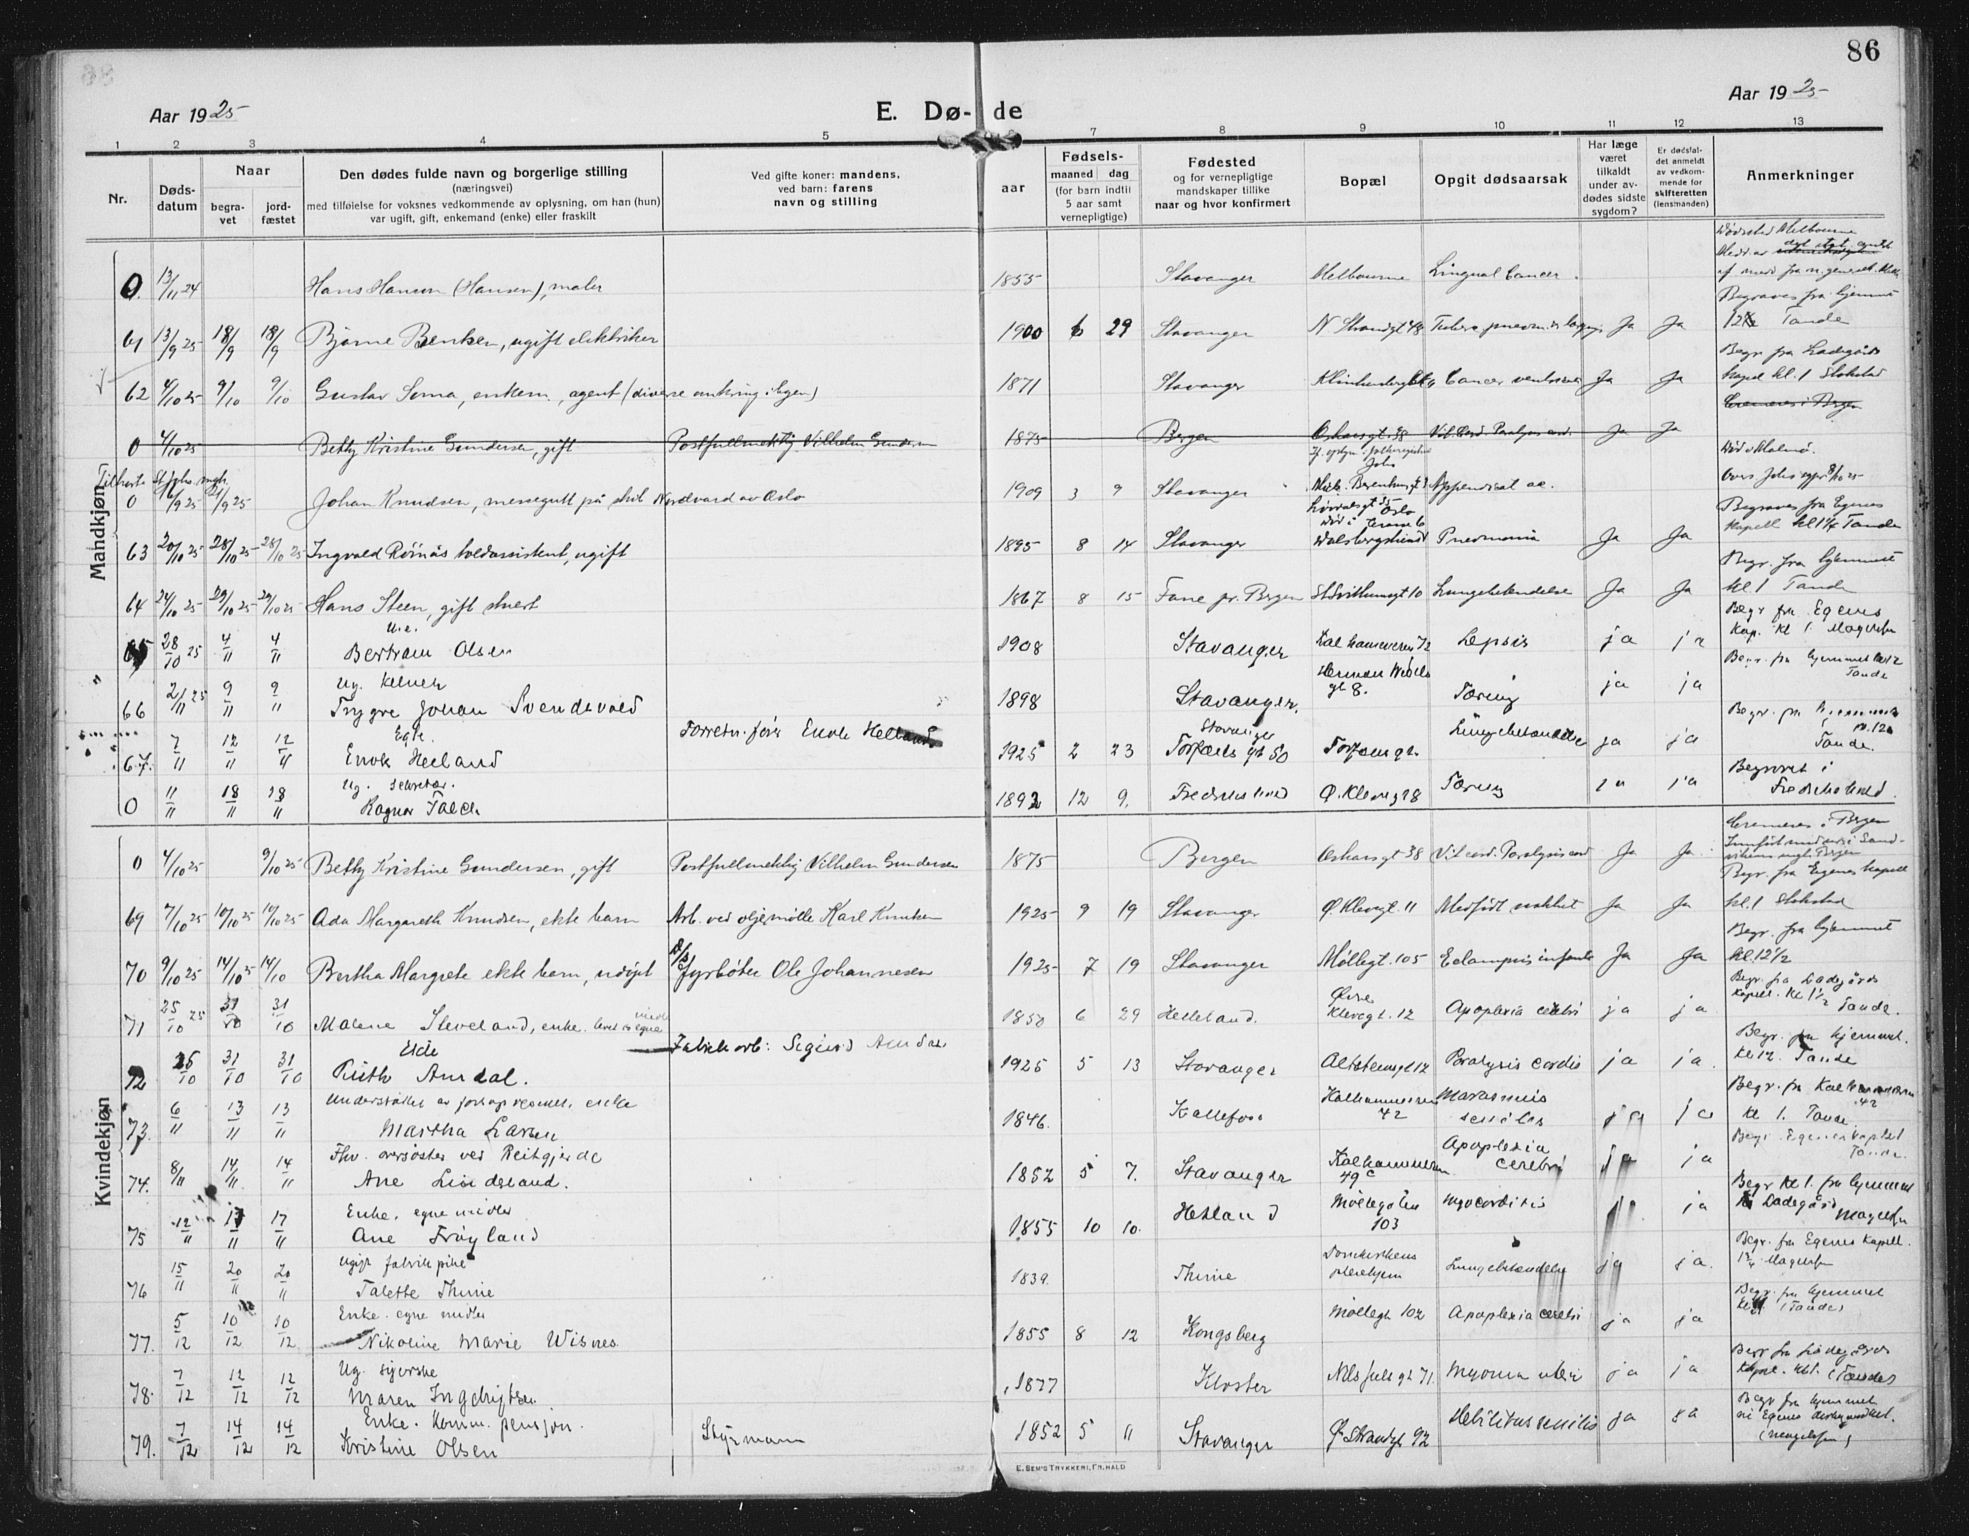 86
Aar 1925
E. Dø- de
Aar 1925
1 2 3 4 5 7 8 9 10 11 12 13
Nr.
Døds-
datum
Naar
begra-
vet
jord-
fæstet
Den dødes fulde navn og borgerlige stilling
(næringsvei)
med tilføielse for voksnes vedkommende av oplysning, om han (hun)
var ugift, gift, enkemand (enke) eller fraskilt
Ved gifte koner: mandens,
ved barn: farens
navn og stilling
aar
Fødsels-
maaned dag
(for barn indtil
5 aar samt
vernepligtige)
Fødested
og for vernepligtige
mandskaper tillike
naar og hvor konfirmert
Bopæl
Opgit dødsaarsak
Har læge
været
tilkaldt
under av-
dødes sidste
sygdom?
Er dødsfal-
det anmeldt
av vedkom-
mende for
skifteretten
(lensmanden)
Anmerkninger
Mandkjøn
Dødssted Melbourne
0. 13/11 24 Hans Hanson (Hansen), maler 1855 Stavanger Melbourne Lingual Cancer
Begraves fra hjemmet
61 13/9 25 18/9 18/9 Bjarne Bentsen, ugift elektriker 1900 6 29 Stavanger N Strandgt 48 Ja Ja Tande
Begr. fra Ladegårds
62 4/10 25 9/10 9/10 Gustav Soma, enkem., agent 1871 Stavanger Cancer ventriculi Ja Ja kapel kl. 1 Slokstad
Cremeres i Bergen
0 4/10 25 Betty Kristine Gundersen, gift Postfullmektig Vilhelm Gundersen 1875 Bergen Oskarsgt. 38 Vit. cord. Paralysis cord. Ja Ja
Død i Malmö.
Tilhørte St. Joh. mgh.
0 6/9 25 21/9 25 Johan Knudsen, messegutt på skib Nordvard av Oslo 1909 3 9 Stavanger Appendicit ac.
Begraves fra Egenes
63 20/10 25 28/10 25 28/10 25 Ingvald Rõinås toldassistent, ugift 1895 8 14 Stavanger Pneumonia Ja Ja kapell kl 1 1/4 Tande
Begr. fra hjemmet
64 24/10 25 29/10 25 29/10 25 Hans Steen, gift 1867 8 15 Fane pr. Bergen St Svithunsgt 10 Lungebetendelse Ja Ja kl. 1 Tande
Begr fra Egenes
65 28/10 25 4/11 4/11 Bertram Olsen 1908 Stavanger Kalhammeren 72 Sepsis ja ja Kap. kl 1. Magelsen
Ug. kelner
66 2/11 25 9/11 9/11 Trygve Johan Svendsvold 1898 Stavanger. Herman Wedels gt 8. Tæring ja ja Begr. fra hjemmet kl 12 Tande
Egte.
67. 7/11 12/11 12/11 Enok Helland Forretn. fører Enok Helland 1925 2 23 Stavanger Torfæus gt 50 Torfæus gt. Lungebetændelse ja ja Begr. fra hjemmet kl. 12 Tande.
Ug. sekretær.
0 11/11 18/11 18/11 Ragnar Falch 1892 12 9. Fredrikshald Ø. Klevegt 8 Tæring ja ja Begravet i Fredrikshald.
Kvindekjøn
Cremeres i Bergen
0 4/10 25 9/10 25 Betty Kristine Gundersen, gift Postfullmektig Vilhelm Gundersen 1875 Bergen Oskarsgt 38 Vit. cord. Paralysis cord Ja Ja
Begr. fra Egenes kapell
69 7/10 25 10/10 25 10/10 25 Ada Margareth Knudsen, ekte barn Arb. ved oljemølle Karl Knudsen 1925 9 19 Stavanger Ø. Klevegt. 11 Medfødt svakhet Ja Ja kl. 1 Slokstad
Begr. fra hjemmet
70 9/10 25 14/10 25 14/10 Bertha Margrete ekte barn, udøpt Fyrbøter Ole Johannesen 1925 7 19 Stavanger Møllegt. 105 Eclampsis infantil Ja Ja kl. 12 1/2
Begr. fra Ladegårds
71 25/10 25 31/10 31/10 Malene Sleveland, enke. levet av egne midler 1850 6 29 Helleland. Øvre Klevegt. 12 Apoplexia cerebri ja ja kapell. Kl 1 1/2 Tande.
Ekte
72 26/10 31/10 31/10 Ruth Amdal. Fabrikarb: Sigurd Amdal 1925 5 13 Stavanger Paralysis cordis ja ja Begr. fra hjemmet. Kl 12. Tande
Understøttet av forsorgsvesenet. enke
73. 6/11 13/11 13/11 Martha Larsen 1846. Kalhammeren 42 Marasmus senilis ja ja Begr. fra Kalhammeren 42 kl 1. Tande.
Fhv. oversøster ved Reitgjerde
74. 8/11 14/11 14/11 Ane Lindeland. 1852 5 7. Stavanger Kalhammeren 49 c Apoplexia cerebri ja ja Begr. Egenes kapel Tande.
Enke. egne midler
75 12/11 17/11 17/11 Ane Frøyland 1855 10 10. Hetland Møllegaten 103 Myocarditis ja Begr kl 1. fra hjemmet Ladegård Magelsen
Ugift fabrikpike
76 15/11 20/11 20/11 Talette Thime 1839. Thime Domkirkens pleiehjem Lungebetændelse ja ja. Begr. fra Egenes Kapell. Magelsen
Enke. egne midler
77. 5/12 10/12 10/12 Nikoline Marie Wisnes 1855 8 12 Kongsberg Møllegt 102 Apoplexia cerebri ja ja Begr. fra hjemmet kl. 1 (Tande)
Ug. syerske
78. 7/12 12/12 12/12 Maren Ingebrigtsen 1877 Kloster Nils Juels gt 71. Myoma uteri ja ja Begr fra Ladegårds Kapel. kl 1. (Tande)
Enke. Komm. pensjon.
79. 7/12 14/12 14/12 Kristine Olsen Styrmann 1852 5 11 Stavanger Ø Strandgt 92 Debilitas senilis ja ja Begr fra hjemmet (Magelsen)
E. SEM'S TRYKKERI, FR.HALD